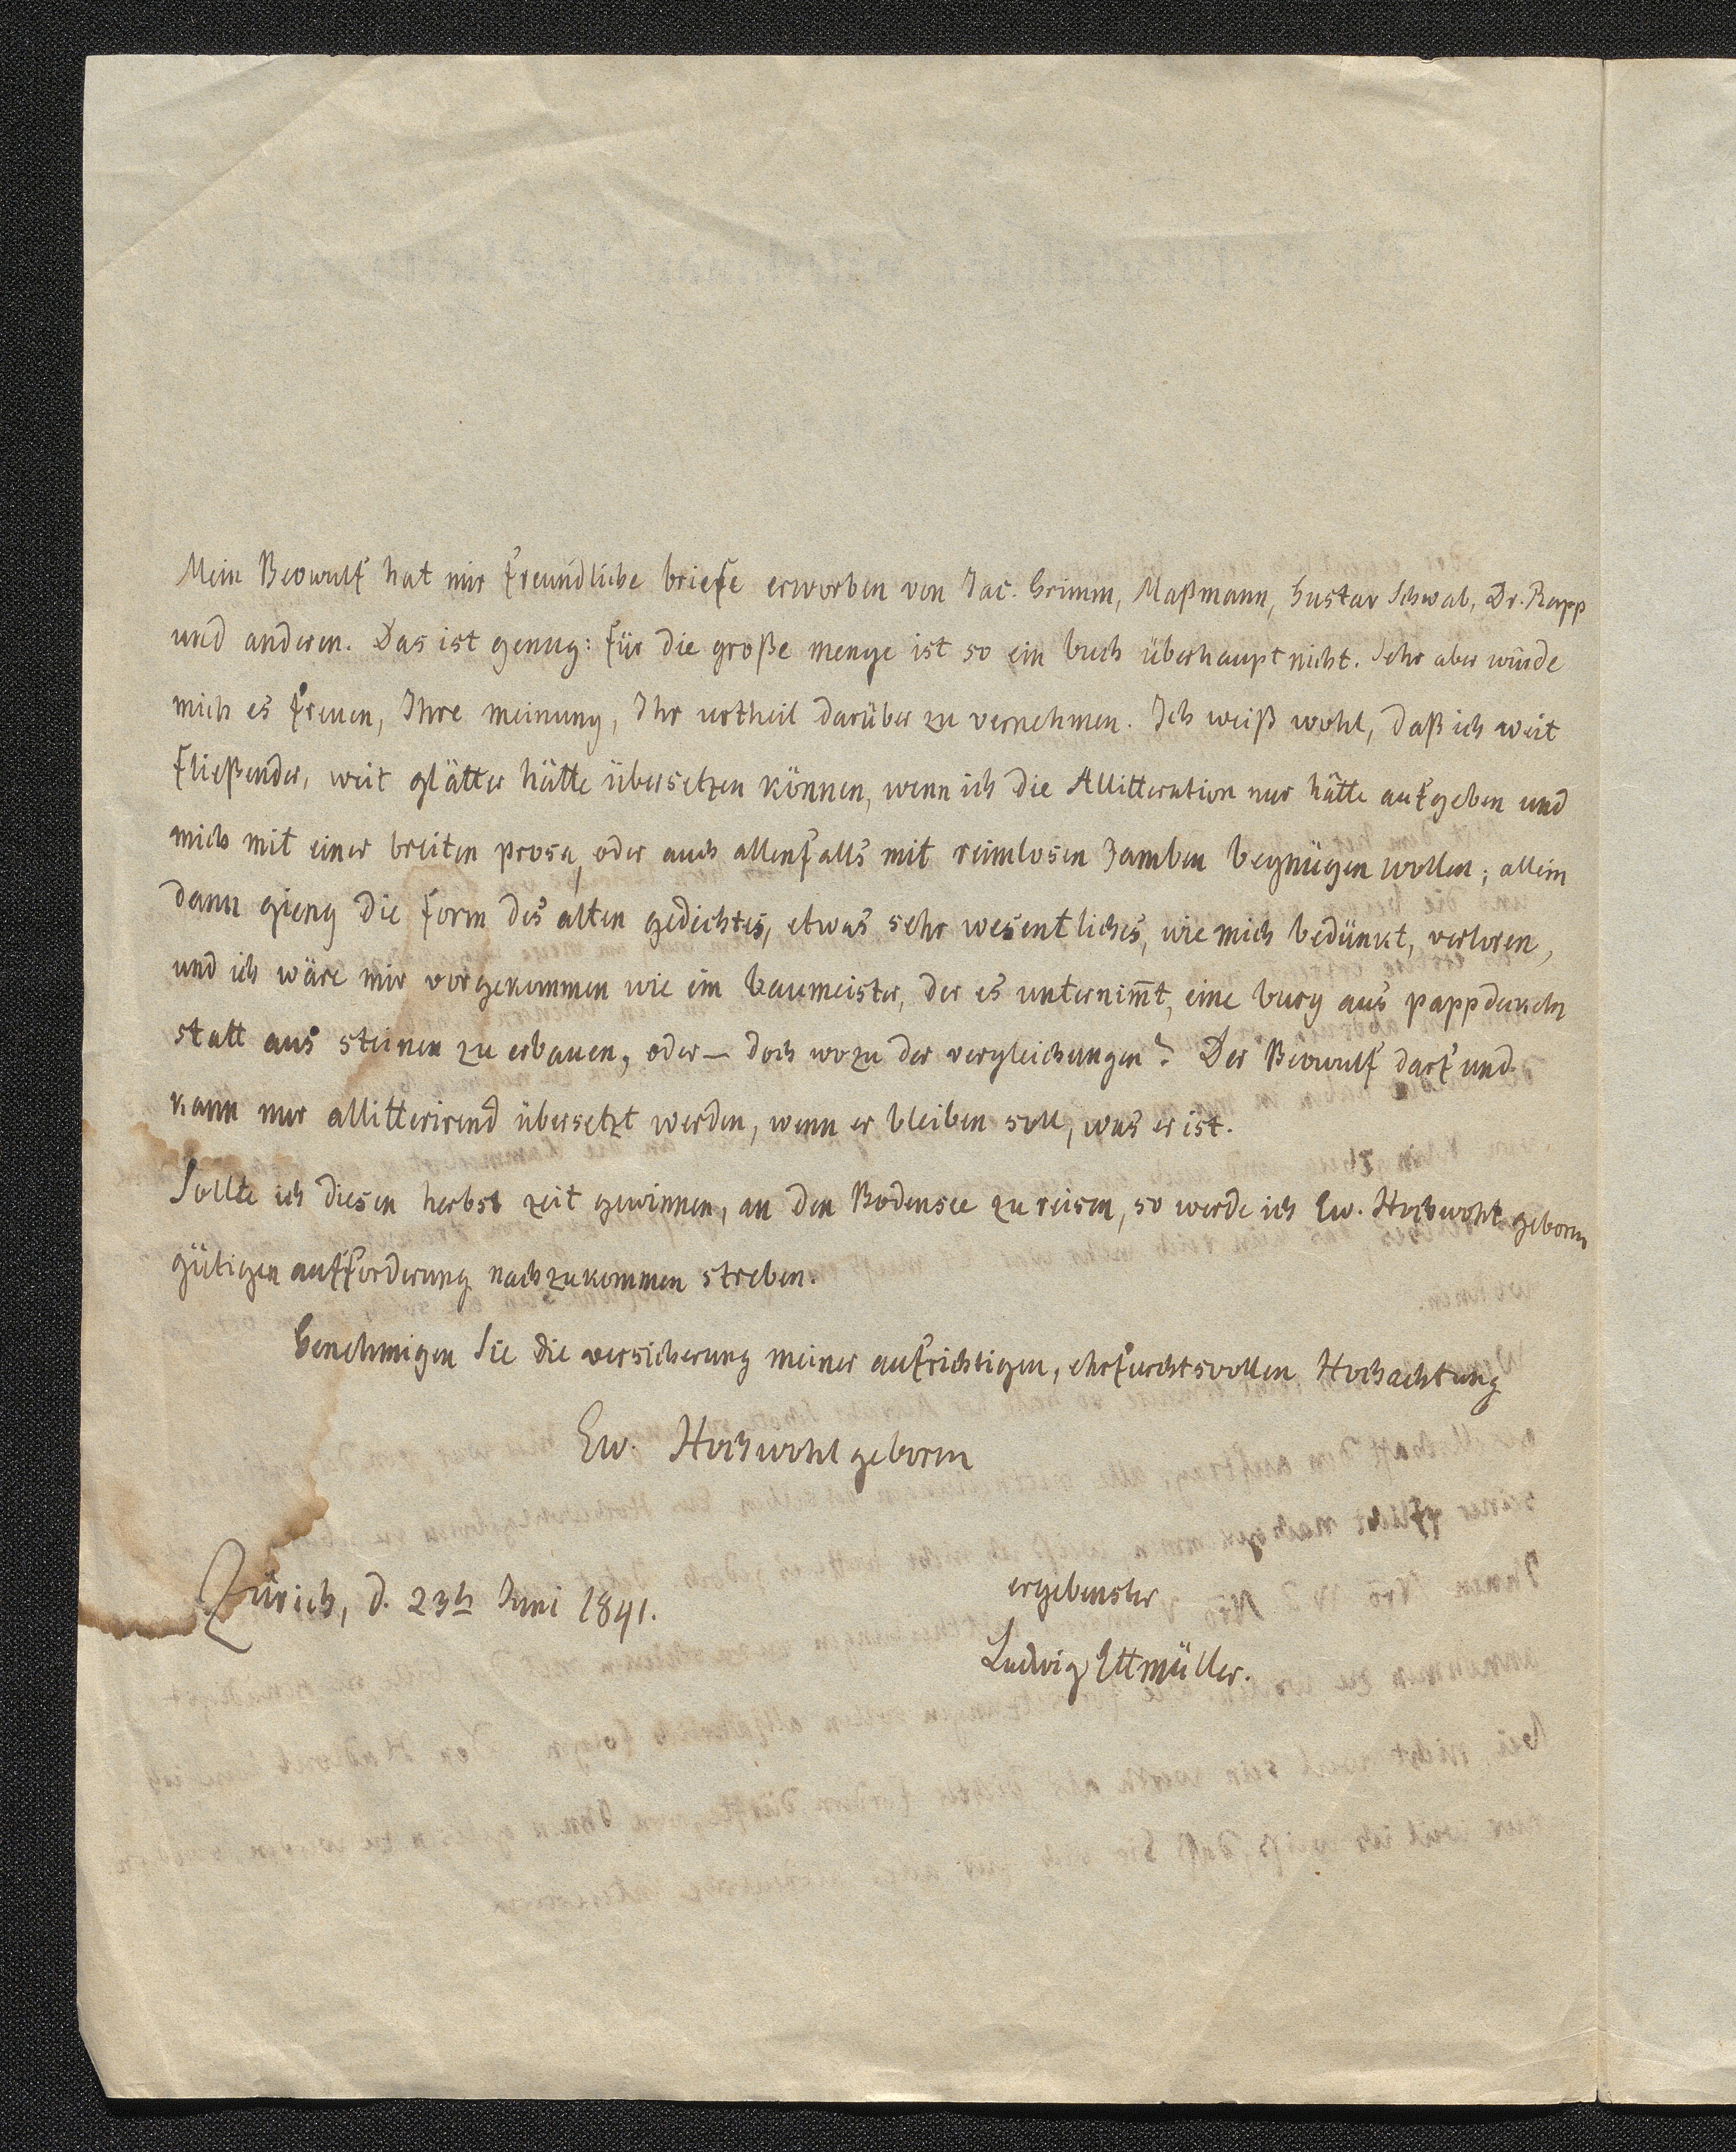 Mein Beowulf hat mir freundliche briefe erworben von Jac. Grimm, Maßmann, Gustav Schwab, Dr. Rapp
und anderen. Das ist genug: für die große menge ist so ein buch überhaupt nicht. Sehr aber würde
mich es freuen, Ihre meinung, Ihr urtheil darüber zu vernehmen. Ich weiß wohl, daß ich weit
fließender, weit glätter hätte übersetzen können, wenn ich die Allitteration nur hätte aufgeben und
mich mit einer breiten prosa, oder auch allenfalls mit reimlosen Jamben begnügen wollen; allein
dann gieng die form des alten gedichtes, etwas sehr wesentliches, wie mich bedünkt, verloren,
und ich wäre mir vorgekommen wie ein baumeister, der es unternim̄t, eine burg aus pappdeckeln
statt aus steinen zu erbauen, oder — doch wozu der vergleichungen? Der Beowulf darf und
kann nur allitterirend übersetzt werden, wenn er bleiben soll, was er ist.
Sollte ich diesen herbst zeit gewinnen, an den Bodensee zu reisen, so werde ich Ew. Hochwohlgeborn
gütigen aufforderung nachzukommen streben.
Genehmigen Sie die versicherung meiner aufrichtigen, ehrfurchtsvollen Hochachtung
Ew. Hochwohlgeborn
ergebenster
Zürich, d. 23t Juni 1841.
Ludwig Ettmüller.